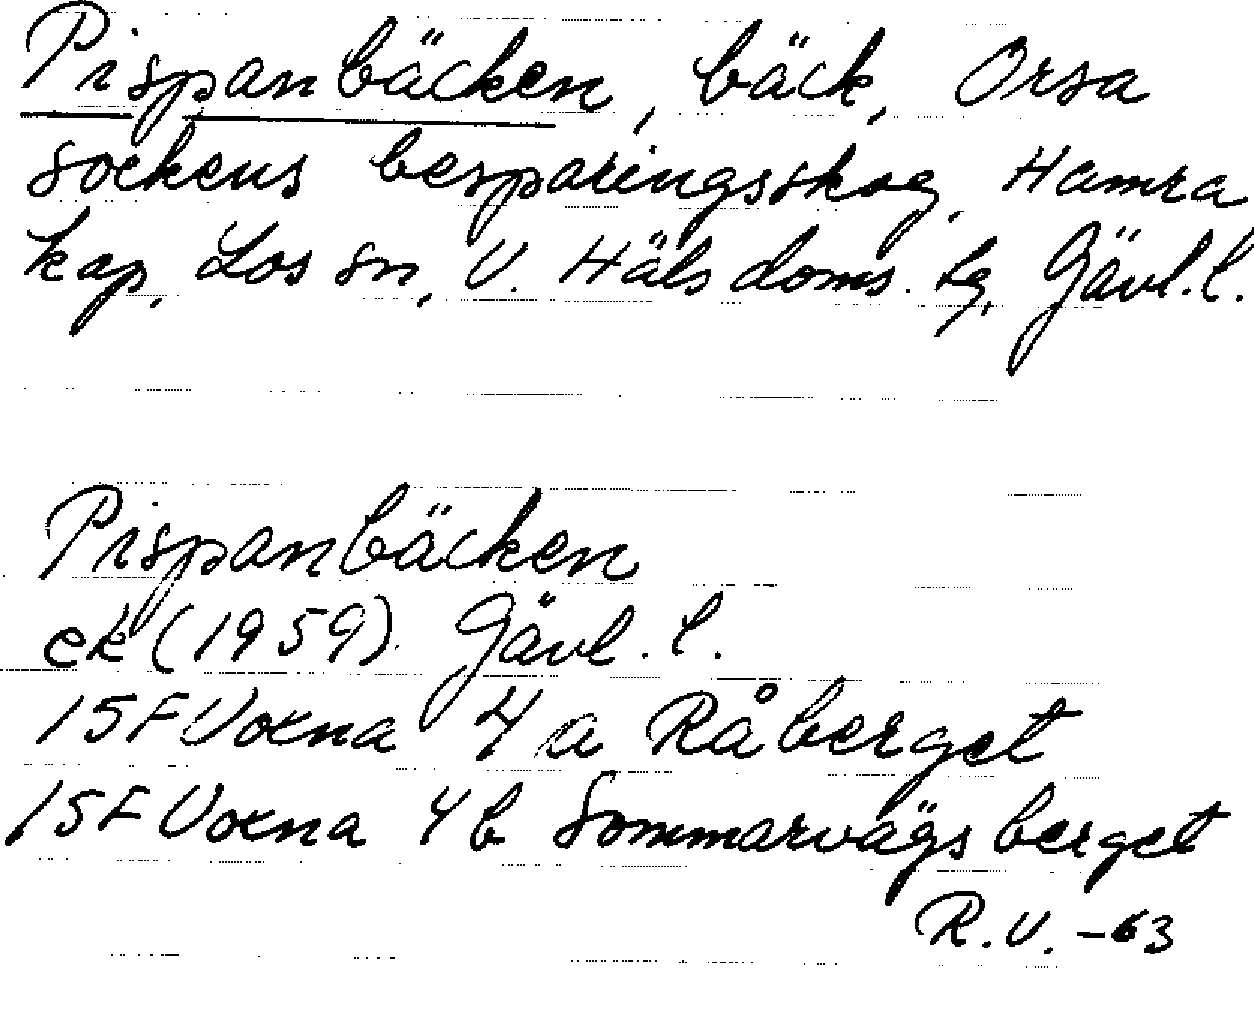 Pispanbäcken, bäck, Orsa
sockens besparingsskog, Hamra
kap, Los sn, V. Häls doms. tg, Gävl. l.
Pispanbäcken
ek (1959). Gävl. l.
15F Voxna 4a Råberget
15F Voxna 4b Sommarvägsberget
R.V. -63